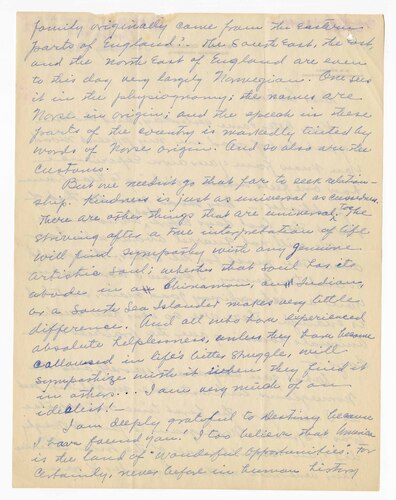 family originally came from the Eastern
parts of England? The South East, the East,
and the North East of England are even
to this day very largely Norwegian. One sees
it in the physiognomy; the names are
Norse in origin; and the speech in these
parts of the country is markedly tinted by
words of Norse origin. And so also are the
Customs.
But we needn't go that far to seek relation-
ship. Kindness is just as universal as cussedness.
There are other things that are universal, too. The
striving after a true interpretation of life
will find sympathy with any genuine
artistic soul; whether that soul has its
abode in a Chinaman, an Indian,
or a South Sea Islander makes very little
difference. And all who have experienced
absolute helplessness, unless they have become
calloused in life's bitter struggle, will
sympathize with it when they find it
in others... I am very much of an
idealist! —
I am deeply grateful to Destiny because
I have found you. I too believe that America
is the land of "Wonderful Opportunities". For
Certainly, never before in human history